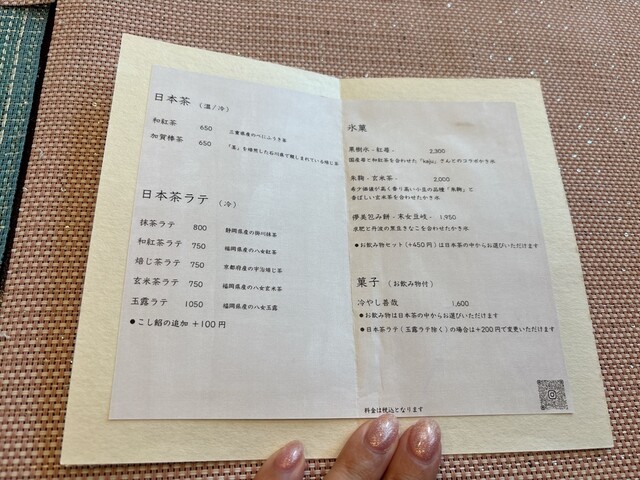 日本茶 (温/冷)
和紅茶 650 三重県産のべにふうき茶
加賀棒茶 650 「茎」を焙煎した石川県で親しまれている焙じ茶
日本茶ラテ (冷)
抹茶ラテ 800 静岡県産の掛川抹茶
和紅茶ラテ 750 福岡県産の八女紅茶
焙じ茶ラテ 750 京都府産の宇治焙じ茶
玄米茶ラテ 750 福岡県産の八女玄米茶
玉露ラテ 1050 福岡県産の八女玉露
●こし餡の追加 +100円
氷菓
果樹氷 - 紅苺 - 2,300
国産苺と和紅茶を合わせた「kaju」さんとのコラボかき氷
朱鞠 - 玄米茶 - 2,000
希少価値が高く香り高い小豆の品種「朱鞠」と
香ばしい玄米茶を合わせたかき氷
儚美包み餅 - 末女豆岐 - 1,950
求肥と丹波の黒豆きなこを合わせたかき氷
●お飲み物セット (+450円) は日本茶の中からお選びいただけます
菓子 (お飲み物付)
冷やし善哉 1,600
●お飲み物は日本茶の中からお選びいただけます
●日本茶ラテ (玉露ラテ除く) の場合は+200円で変更いただけます
料金は税込となります